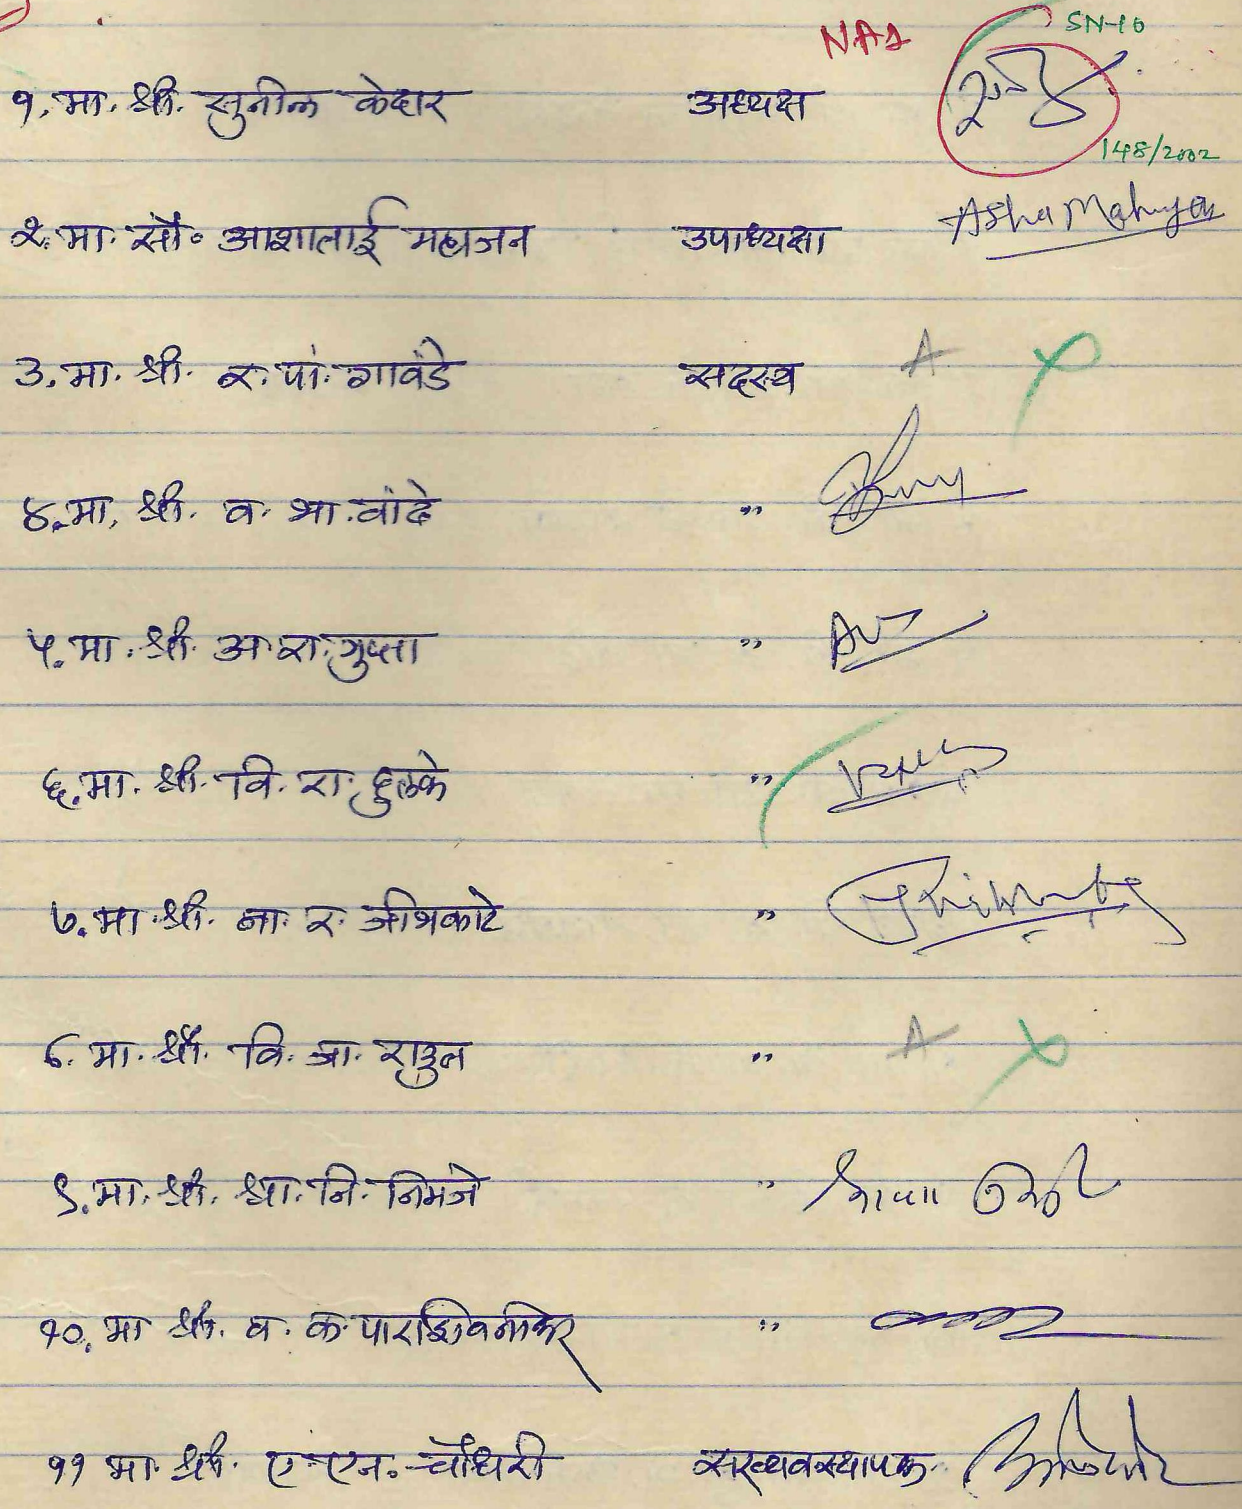 NA1 SN-10
१. मा. श्री. सुनील केदार अध्यक्ष
148/2002
२. मा. सौ. आशाताई महाजन उपाध्यक्षा Asha Mahajan
३. मा. श्री. रु. पां. गावंडे सदस्य A
४. मा. श्री. व. भा. चांदे "
५. मा. श्री. अ. रा. गुप्ता "
६. मा. श्री. वि. रा. हुलके "
७. मा. श्री. ना. र. "
८. मा. श्री. वि. बा. राऊत " A
९. मा. श्री. श्रा. नि. निमजे "
१०. मा. श्री. व. क. पाराशिवनीकर "
११ मा. श्री. ए. एन. चौधरी सरव्यवस्थापक